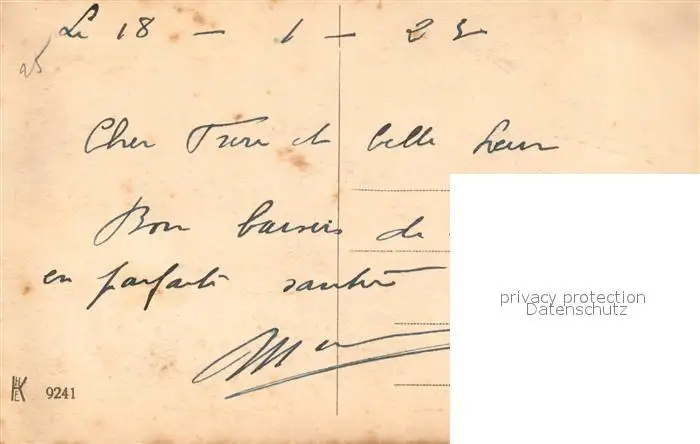 Le 18 - 1 - 25
25
Cher Frere et belle Sœur
Bon baisers de
en parfaite santé
HKE 9241
privacy protection
Datenschutz